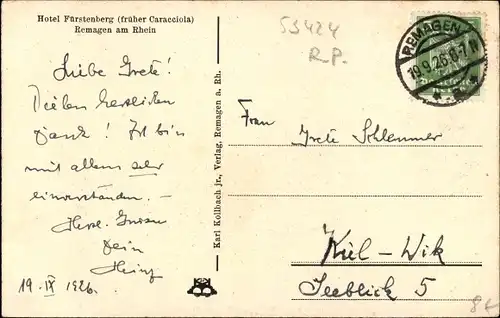 Hotel Fürstenberg (früher Caracciola)
Remagen am Rhein
Liebe Grete!
Vielen herzlichen
Dank! Ich bin
mit allem sehr
einverstanden. –
Herzl. Gruss
Dein
Heinz
19. IX 1926.
Karl Kollbach jr., Verlag, Remagen a. Rh.
53424
R.P.
REMAGEN
19.9.26.6-7N
Frau Grete Schlemmer
Kiel-Wik
Seeblick 5